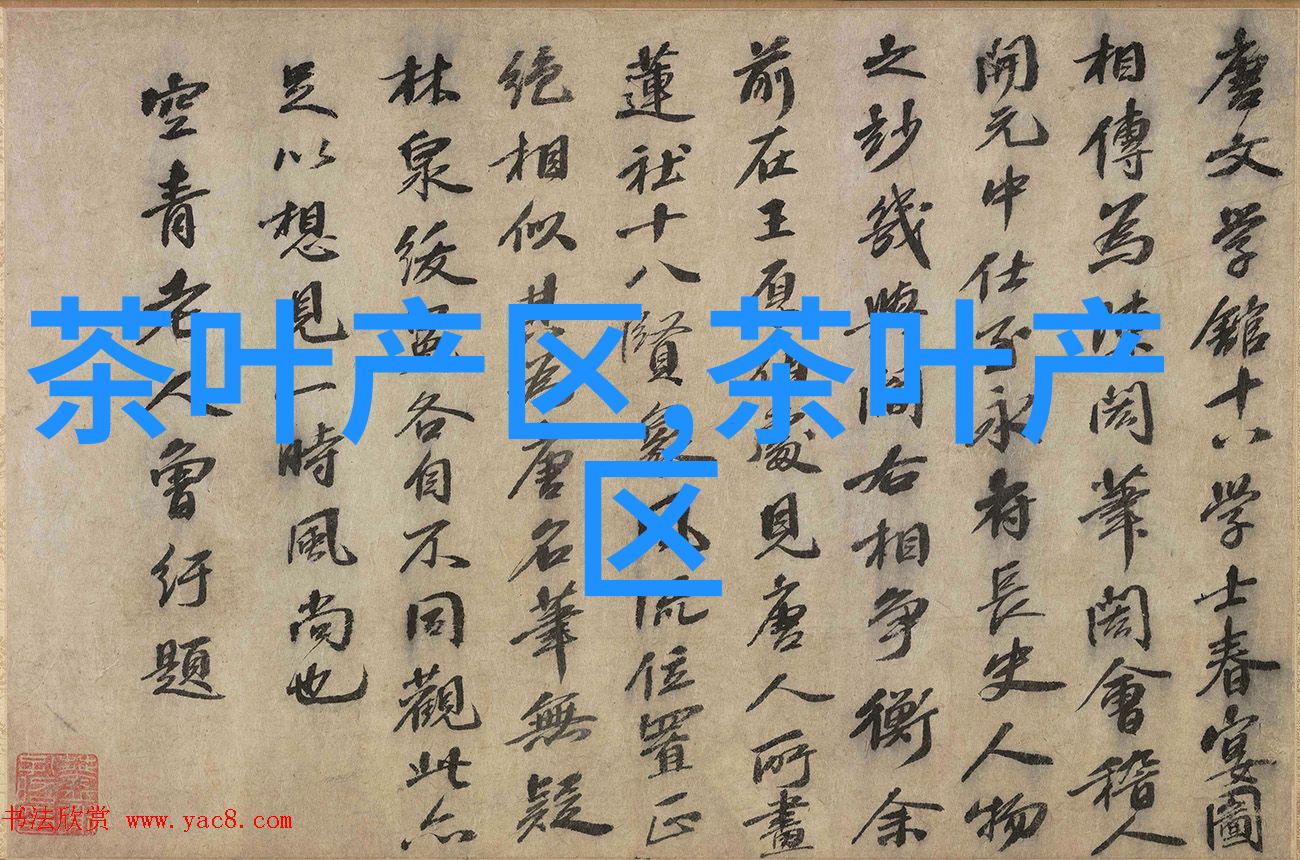 茶叶产区,茶叶产
区
唐文学館十八学士春宴圖
相傳為闳筆闳會稽人
開元中仕至永府長史人物
之妙幾與閻右相争衡余
前在王處見唐人所畫
蓮社十八賢象風流位置正
绝相似其為唐名筆無疑
林泉各自不同觀此亦
足以想見一時風尚也
空青老人曾紆題
书法欣赏 www.yac8.com